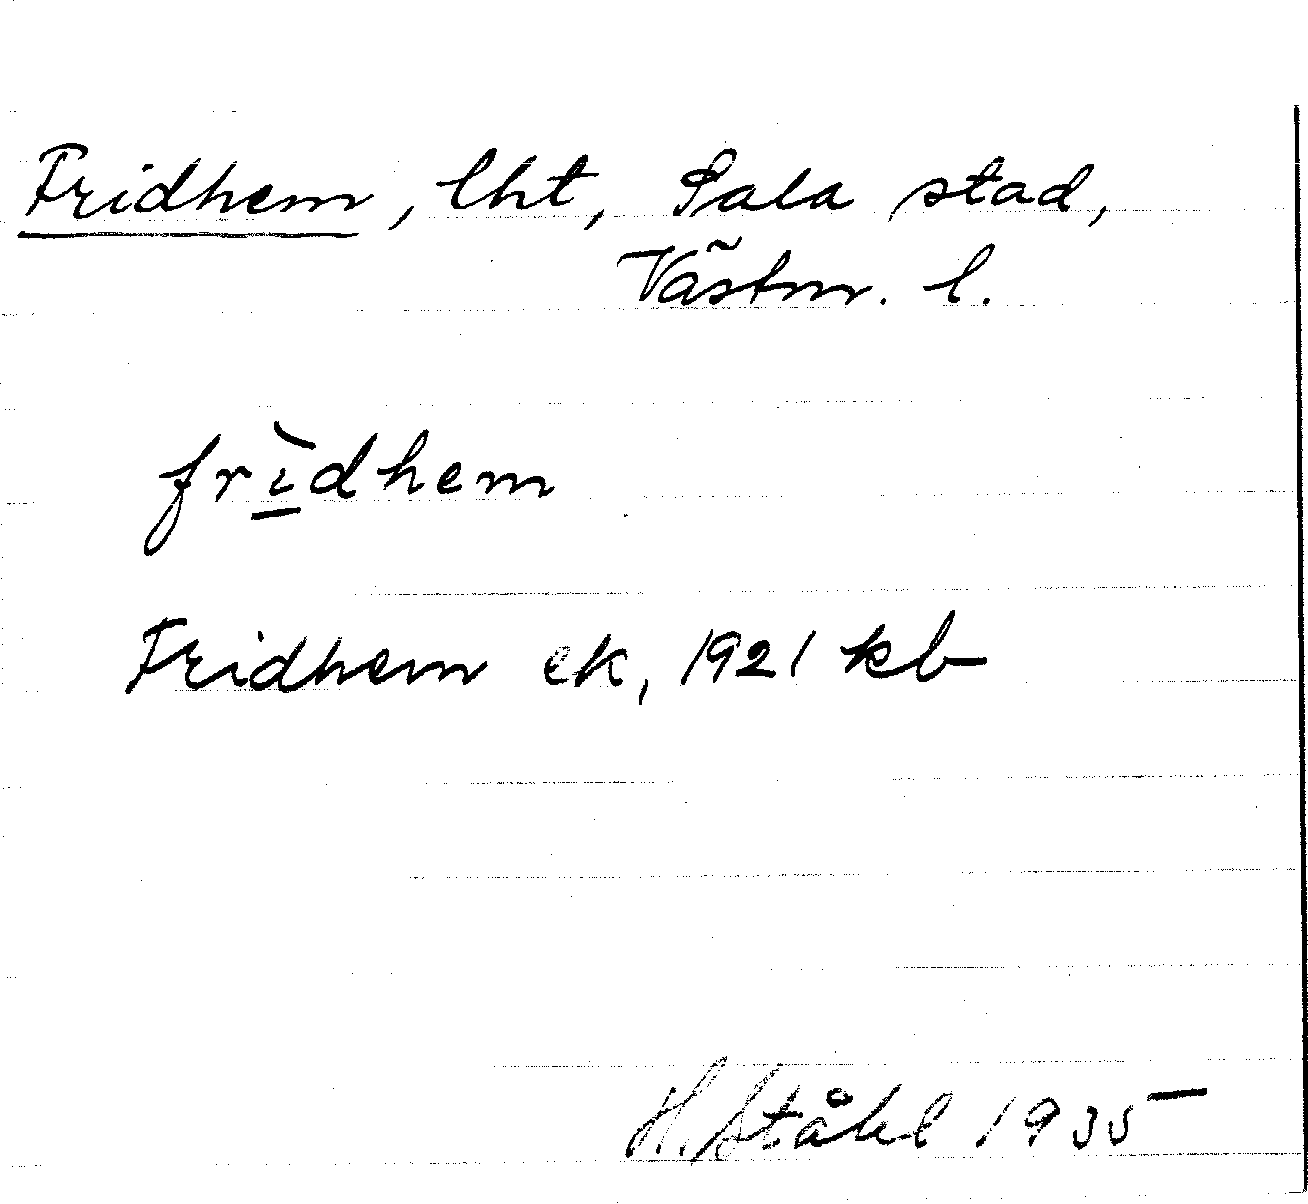 Fridhem, lht, Sala stad,
Västm. l.
frı̱̀dhem
Fridhem ek, 1921 kb
H. Ståhl 1935